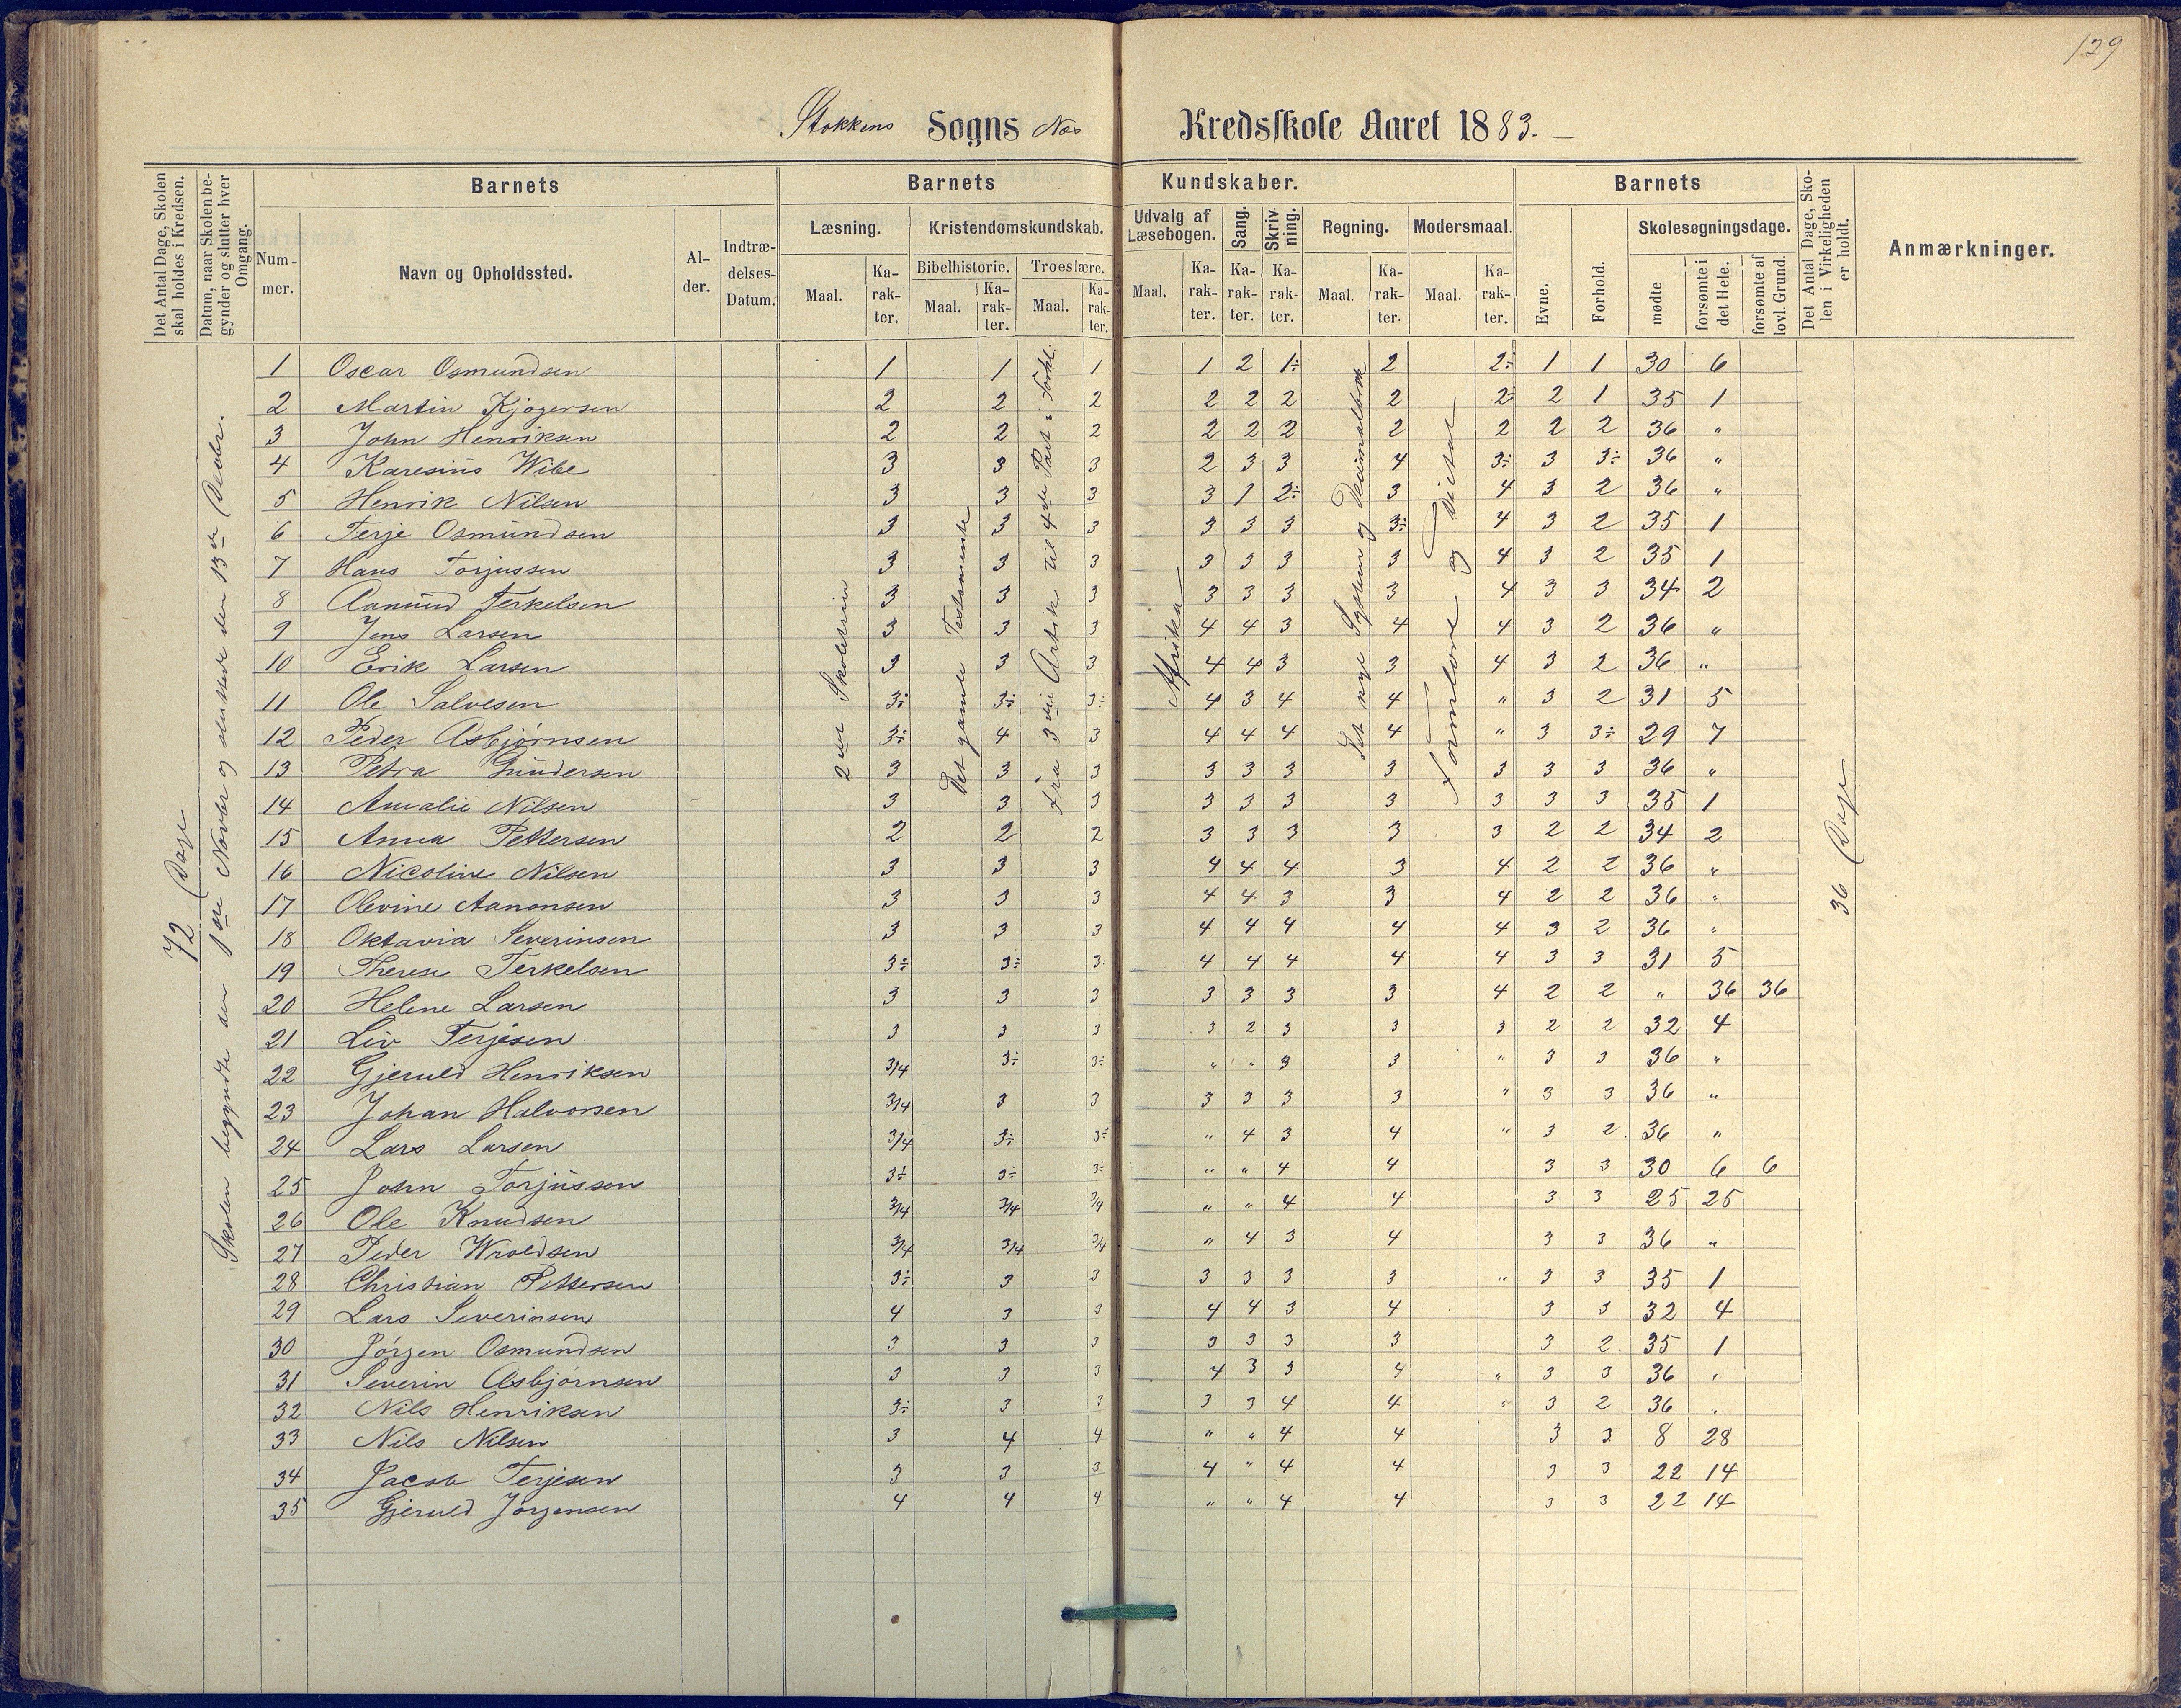 129
Stokkens Sogns Næs Kredsskole Aaret 1883.
Det Antal Dage, Skolen skal holdes i Kredsen.
Datum, naar Skolen begynder og slutter hver Omgang.
Barnets
Barnets Kundskaber.
Barnets
Det Antal Dage, Skolen i Virkeligheden er holdt.
Anmærkninger.
Nummer.
Navn og Opholdssted.
Alder.
Indtrædelses-Datum.
Læsning.
Kristendomskundskab.
Udvalg af Læsebogen.
Sang.
Skrivning.
Regning.
Modersmaal.
Evne.
Forhold.
Skolesøgningsdage.
Bibelhistorie.
Troeslære.
Maal. Karakter. Maal. Karakter. Maal. Karakter. Maal. Karakter. Karakter. Karakter. Maal. Karakter. Maal. Karakter.
mødte
forsømte i det Hele.
forsømte af lovl. Grund.
72 Dage
Skolen begyndte den 1ste Novbr og sluttede den 13de Decbr.
2det Skoletrin
Det gamle Testamente
Fra 3die Artik til 4de Part i Forkl.
Afrika
Det nye System og Decimalbrøk
Formlære og Diktat
36 Dage
1 Oscar Osmundsen 1 1 1 1 2 1÷ 2 2÷ 1 1 30 6
2 Martin Kjøgersen 2 2 2 2 2 2 2 2÷ 2 1 35 1
3 John Henriksen 2 2 2 2 2 2 2 2 2 2 36 "
4 Karesius Wibe 3 3 3 2 3 3 4 3÷ 3 3÷ 36 "
5 Henrik Nilsen 3 3 3 3 1 2÷ 3 4 3 2 36 "
6 Terje Osmundsen 3 3 3 3 3 3 3÷ 4 3 2 35 1
7 Hans Torjussen 3 3 3 3 3 3 3 4 3 2 35 1
8 Aanund Terkelsen 3 3 3 3 3 3 3 4 3 3 34 2
9 Jens Larsen 3 3 3 4 4 3 4 4 3 2 36 "
10 Erik Larsen 3 3 3 4 4 3 3 4 3 2 36 "
11 Ole Salvesen 3÷ 3÷ 3÷ 4 3 4 4 " 3 2 31 5
12 Peder Asbjørnsen 3÷ 4 3 4 4 4 4 " 3 3÷ 29 7
13 Petra Gundersen 3 3 3 3 3 3 3 3 3 3 36 "
14 Amalie Nilsen 3 3 3 3 3 3 3 3 3 3 35 1
15 Anna Pettersen 2 2 2 3 3 3 3 3 2 2 34 2
16 Nicoline Nilsen 3 3 3 4 4 4 3 4 2 2 36 "
17 Olevine Aanonsen 3 3 3 4 4 3 3 4 2 2 36 "
18 Oktavia Severinsen 3 3 3 4 4 4 4 4 3 2 36 "
19 Therese Terkelsen 3÷ 3÷ 3÷ 4 4 4 4 4 3 3 31 5
20 Helene Larsen 3 3 3 3 3 3 3 4 2 2 " 36 36
21 Liv Terjesen 3 3 3 3 2 3 3 3 2 2 32 4
22 Gjeruld Henriksen 3/4 3÷ 3÷ " " 3 3 " 3 3 36 "
23 Johan Halvorsen 3/4 3 3 3 3 3 3 " 3 3 36 "
24 Lars Larsen 3/4 3÷ 3÷ " 4 3 4 " 3 2 36 "
25 John Torjussen 3÷ 3÷ 3÷ " " 4 4 3 3 30 6 6
26 Ole Knudsen 3/4 3/4 3/4 " " 4 4 3 3 25 25
27 Peder Wroldsen 3/4 3/4 3/4 " 4 3 4 3 3 36 "
28 Christian Pettersen 3÷ 3 3 3 3 3 3 " 3 3 35 1
29 Lars Severinsen 4 3 3 4 4 3 4 3 3 32 4
30 Jørgen Osmundsen 3 3 3 3 3 3 3 3 2 35 1
31 Severin Asbjørnsen 3 3 3 4 3 3 4 " 3 3 36 "
32 Nils Henriksen 3÷ 3 3 3 3 4 4 " 3 2 36 "
33 Nils Nilsen 3 4 4 " " 4 4 3 3 8 28
34 Jacob Terjesen 3 3 3 4 " 4 4 3 3 22 14
35 Gjeruld Jørgensen 4 4 4 " " 4 4 3 3 22 14